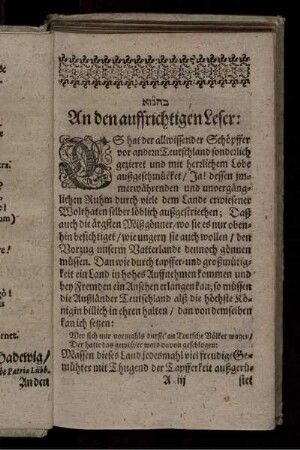 בהנוא
An den auffrichtigen Leser:
ES hat der allwissender Schöpffer
vor andern Teutschland sonderlich
gezieret und mit herrlichem Lobe
außgeschmücket / Ja! dessen im-
merwährenden und unvergäng-
lichen Ruhm durch viele dem Lande erwiesener
Wolthaten selber löblich außgestrichen; Daß
auch die ärgsten Mißgönner / wo sie es nur oben-
hin besichtiget / wie ungern sie auch wollen / den
Vorzug unserm Vatterlande dennoch gönnen
müssen. Dan wie durch tapffer- und großmütig-
keit ein Land in hohes Auffnehmen kommen und
bey Fremden ein Ansehen erlangen kan; so müssen
die Außländer Teutschland alß die höchste Kö-
nigin billich in ehren halten / dan von demselben
kan ich setzen:
Wer sich nur vormahls durfft' an Teutsche Völker wagen /
Der hatte das gewisser word davon geschlagen:
Massen dieses Land jedesmahl viel freudige Ge-
mühter mit Thugend der Tapfferkeit außgerü-
A iij
stet
Hadewig /
de Patria Lübb.
An den